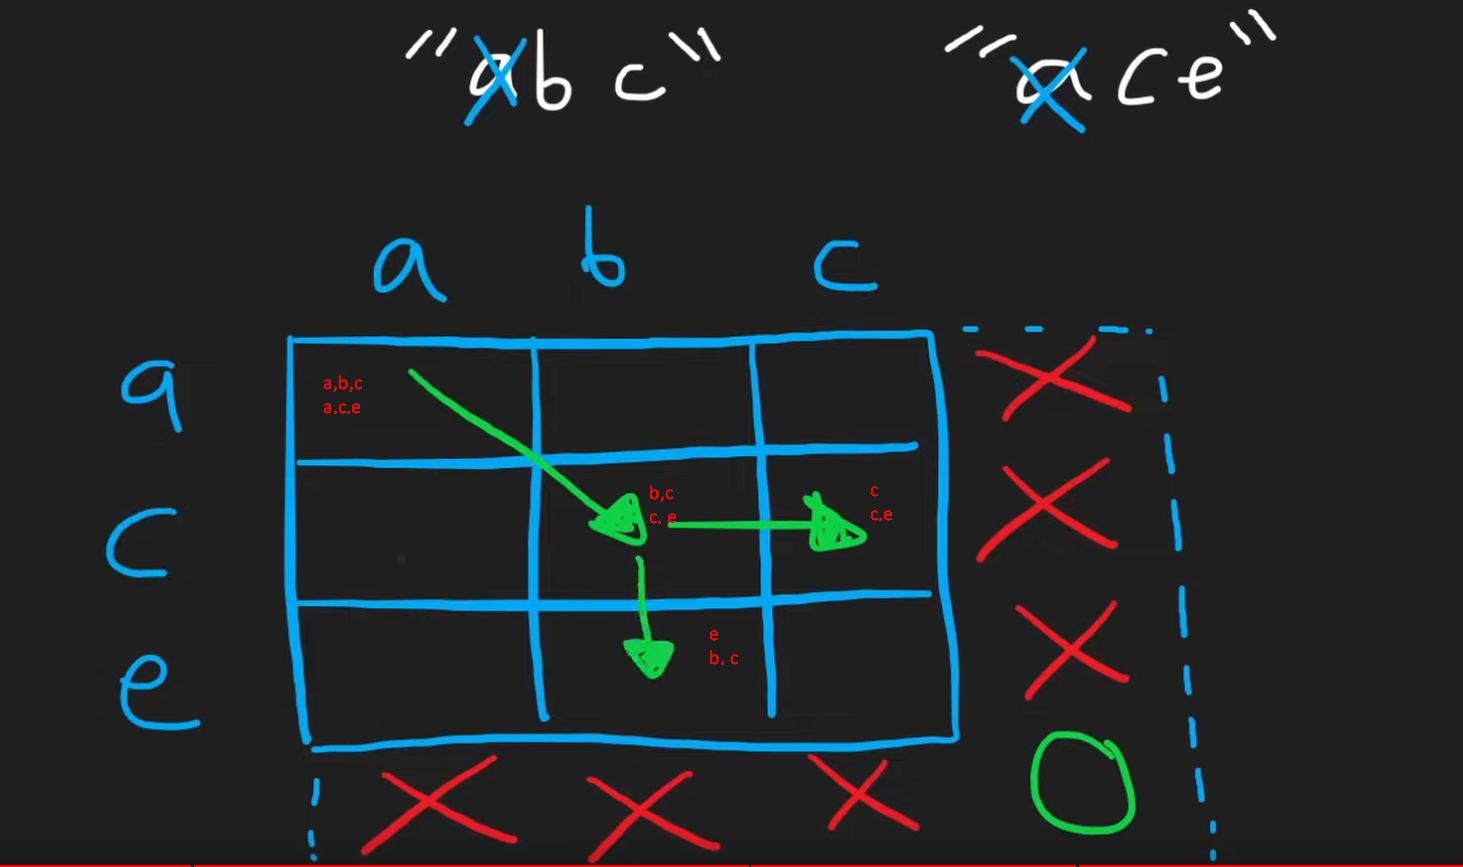 "abc" "ace"
a b c
a
a,b,c
a.c.e
c
b,c
c. e
c
c,e
e
e
b. c